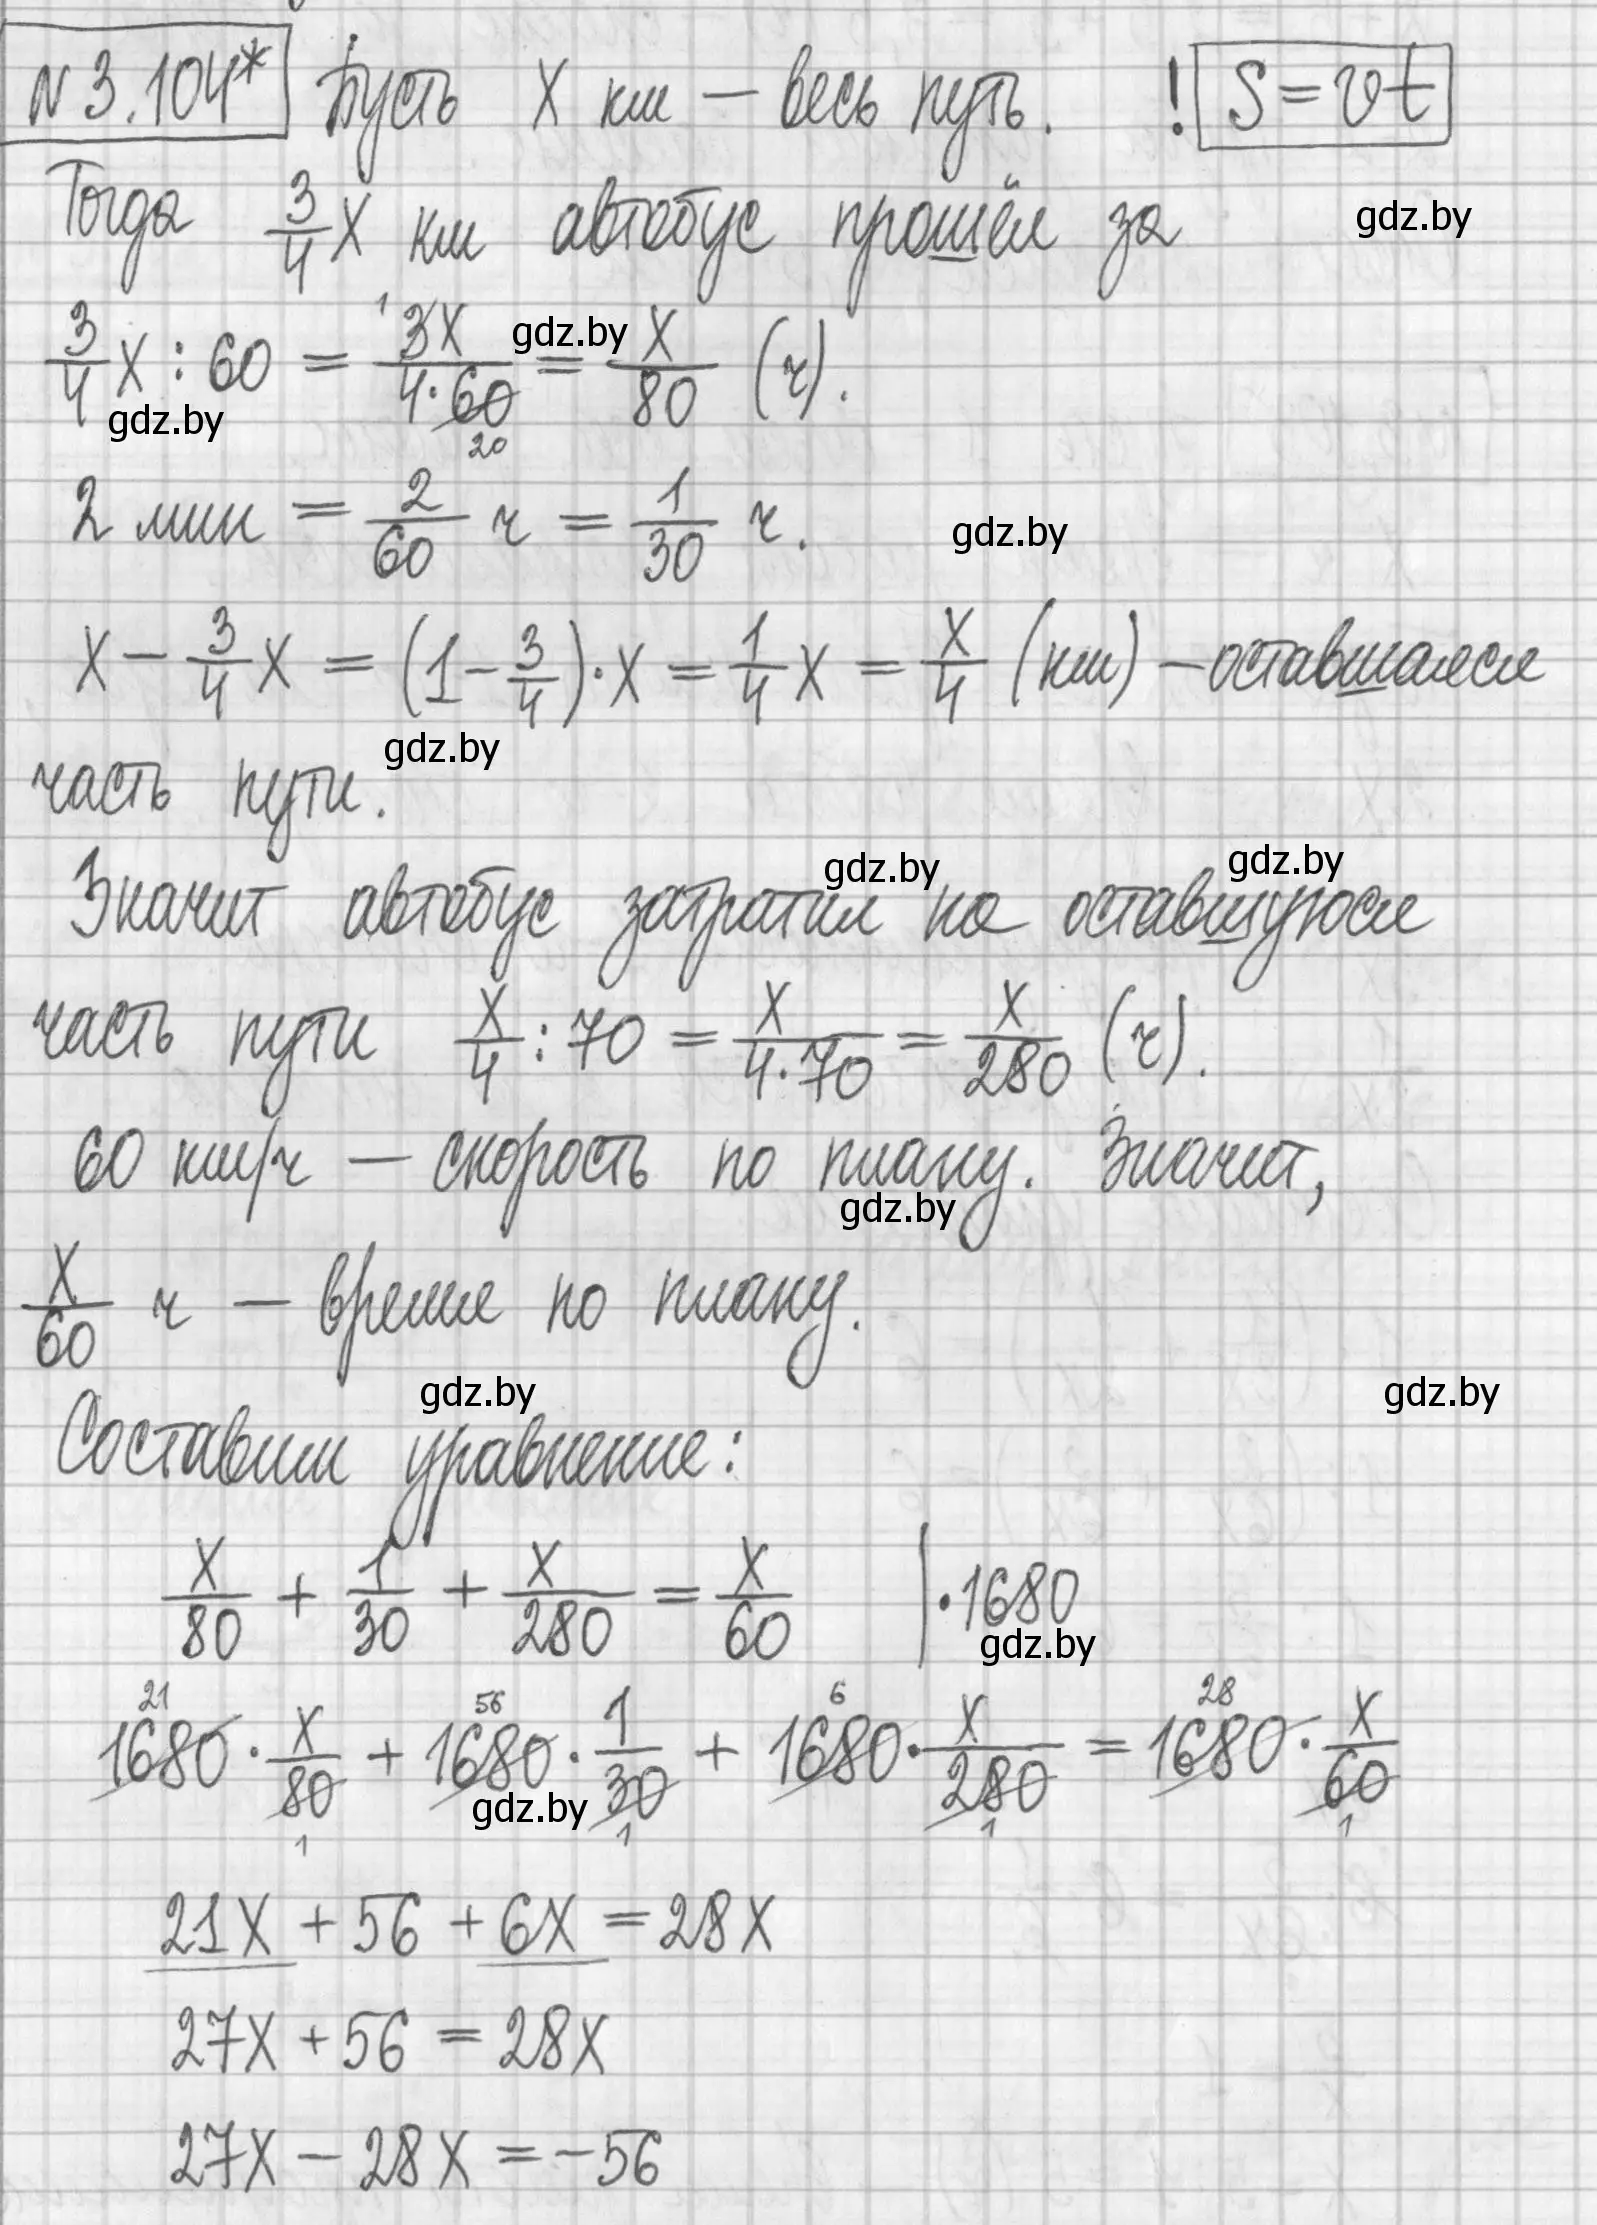 N 3.104* Пусть x км – весь путь. ! S = vt
Тогда 3/4 x км автобус прошёл за
gdz.by
3/4 x : 60 = 3x/(4·60) = x/80 (ч).
1
20
gdz.by
gdz.by
2 мин = 2/60 ч = 1/30 ч.
gdz.by
x – 3/4 x = (1 – 3/4)·x = 1/4 x = x/4 (км) – оставшаяся
gdz.by
часть пути.
gdz.by
gdz.by
Значит автобус затратил на оставшуюся
часть пути x/4 : 70 = x/(4·70) = x/280 (ч).
60 км/ч – скорость по плану. Значит,
gdz.by
x/60 ч – время по плану.
gdz.by
gdz.by
Составим уравнение:
x/80 + 1/30 + x/280 = x/60 |·1680
gdz.by
21 56 6 28
1680 · x/80 + 1680 · 1/30 + 1680 · x/280 = 1680 · x/60
gdz.by
1 1 1 1
21x + 56 + 6x = 28x
27x + 56 = 28x
27x – 28x = –56